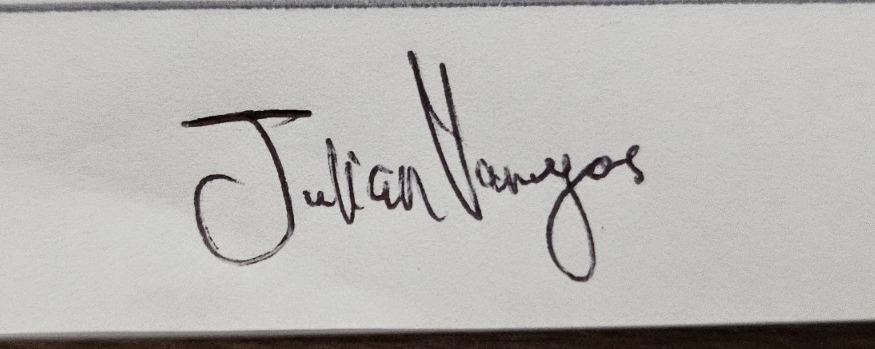 Julian Vanegas